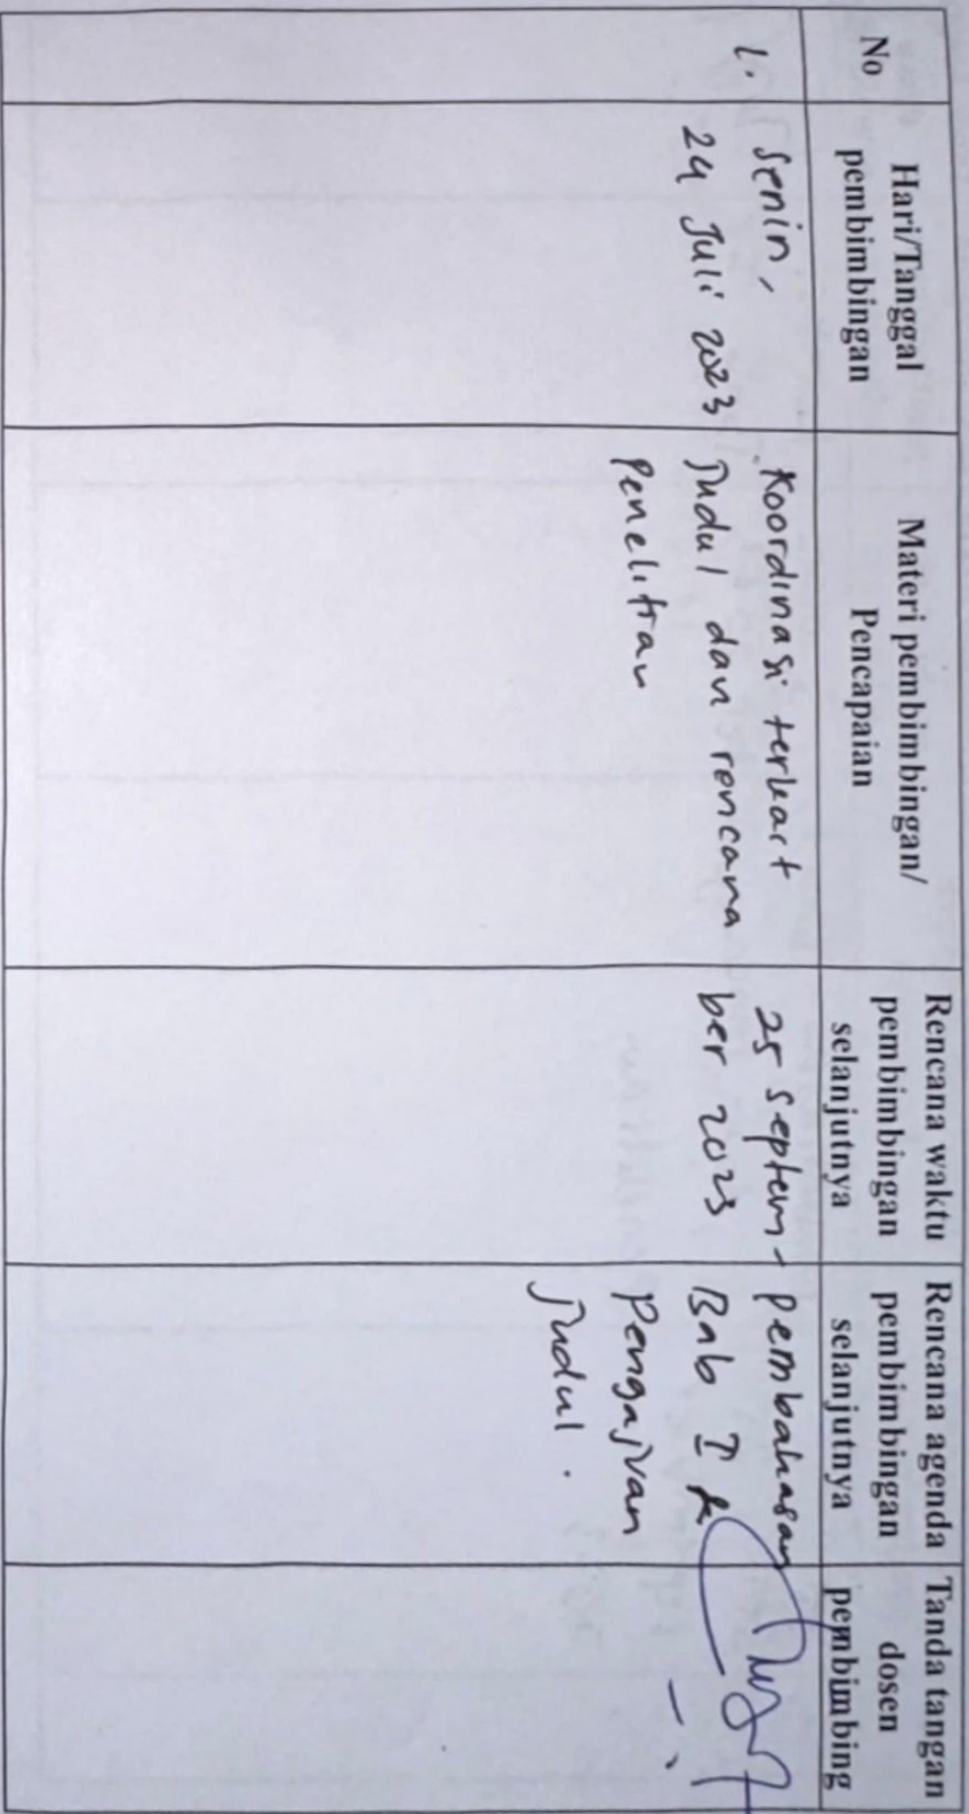 No
Hari/Tanggal
pembimbingan
Materi pembimbingan/
Pencapaian
Rencana waktu
pembimbingan
selanjutnya
Rencana agenda
pembimbingan
selanjutnya
Tanda tangan
dosen
pembimbing
1.
Senin,
24 Juli 2023
Koordinasi terkait
Judul dan rencana
Penelitian
25 Septem-
ber 2023
Pembahasan
Bab I &
Pengajuan
Judul.